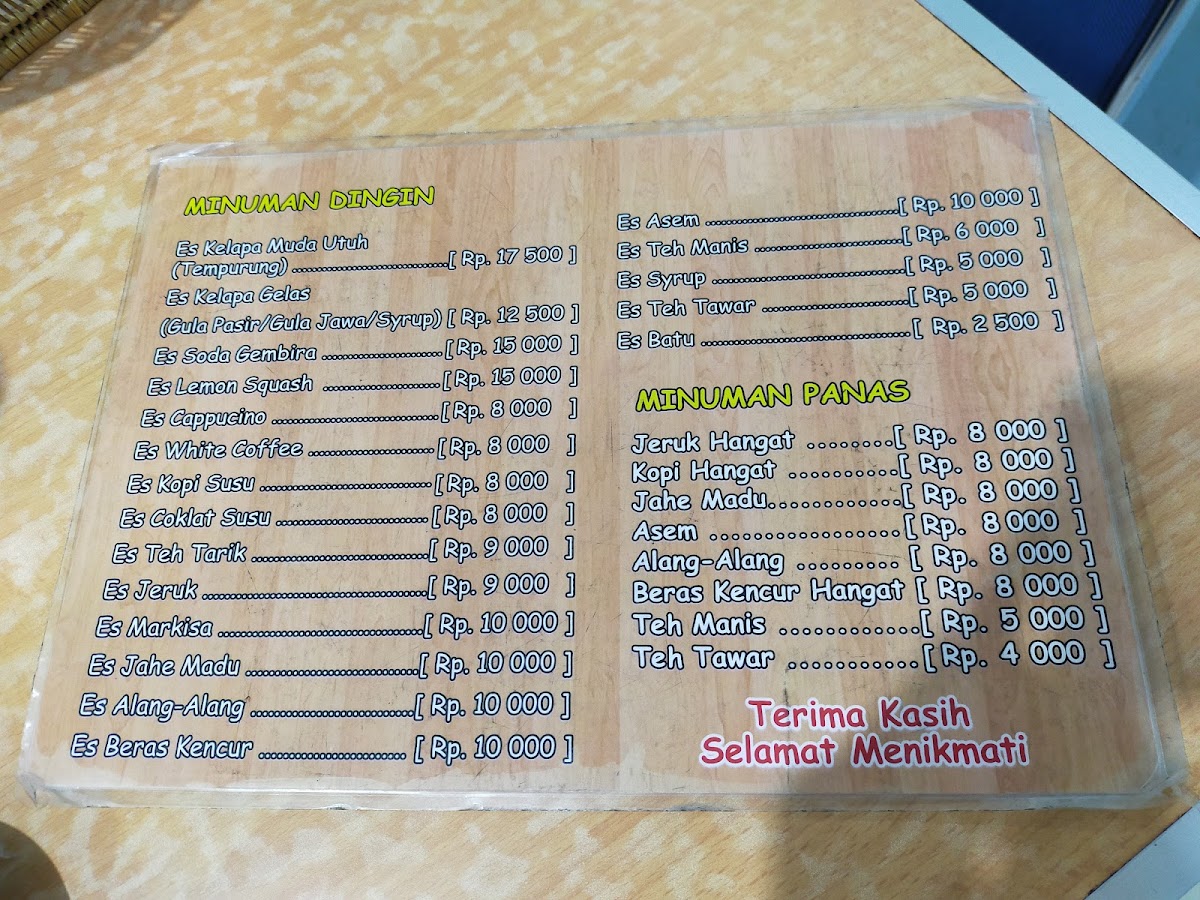 MINUMAN DINGIN
Es Kelapa Muda Utuh
(Tempurung) ........................[ Rp. 17 500 ]
Es Kelapa Gelas
(Gula Pasir/Gula Jawa/Syrup) [ Rp. 12 500 ]
Es Soda Gembira ........................[ Rp. 15 000 ]
Es Lemon Squash ........................[ Rp. 15 000 ]
Es Cappucino ........................[ Rp. 8 000 ]
Es White Coffee ........................[ Rp. 8 000 ]
Es Kopi Susu ........................[ Rp. 8 000 ]
Es Coklat Susu ........................[ Rp. 8 000 ]
Es Teh Tarik ........................[ Rp. 9 000 ]
Es Jeruk ........................[ Rp. 9 000 ]
Es Markisa ........................[ Rp. 10 000 ]
Es Jahe Madu ........................[ Rp. 10 000 ]
Es Alang-Alang ........................[ Rp. 10 000 ]
Es Beras Kencur ........................ [ Rp. 10 000 ]
Es Asem ........................[ Rp. 10 000 ]
Es Teh Manis ........................[ Rp. 6 000 ]
Es Syrup ........................[ Rp. 5 000 ]
Es Teh Tawar ........................[ Rp. 5 000 ]
Es Batu ........................[ Rp. 2 500 ]
MINUMAN PANAS
Jeruk Hangat ........[ Rp. 8 000 ]
Kopi Hangat ..........[ Rp. 8 000 ]
Jahe Madu............[ Rp. 8 000 ]
Asem .................[ Rp. 8 000 ]
Alang-Alang .......... [ Rp. 8 000 ]
Beras Kencur Hangat [ Rp. 8 000 ]
Teh Manis .............[ Rp. 5 000 ]
Teh Tawar ............[ Rp. 4 000 ]
Terima Kasih
Selamat Menikmati